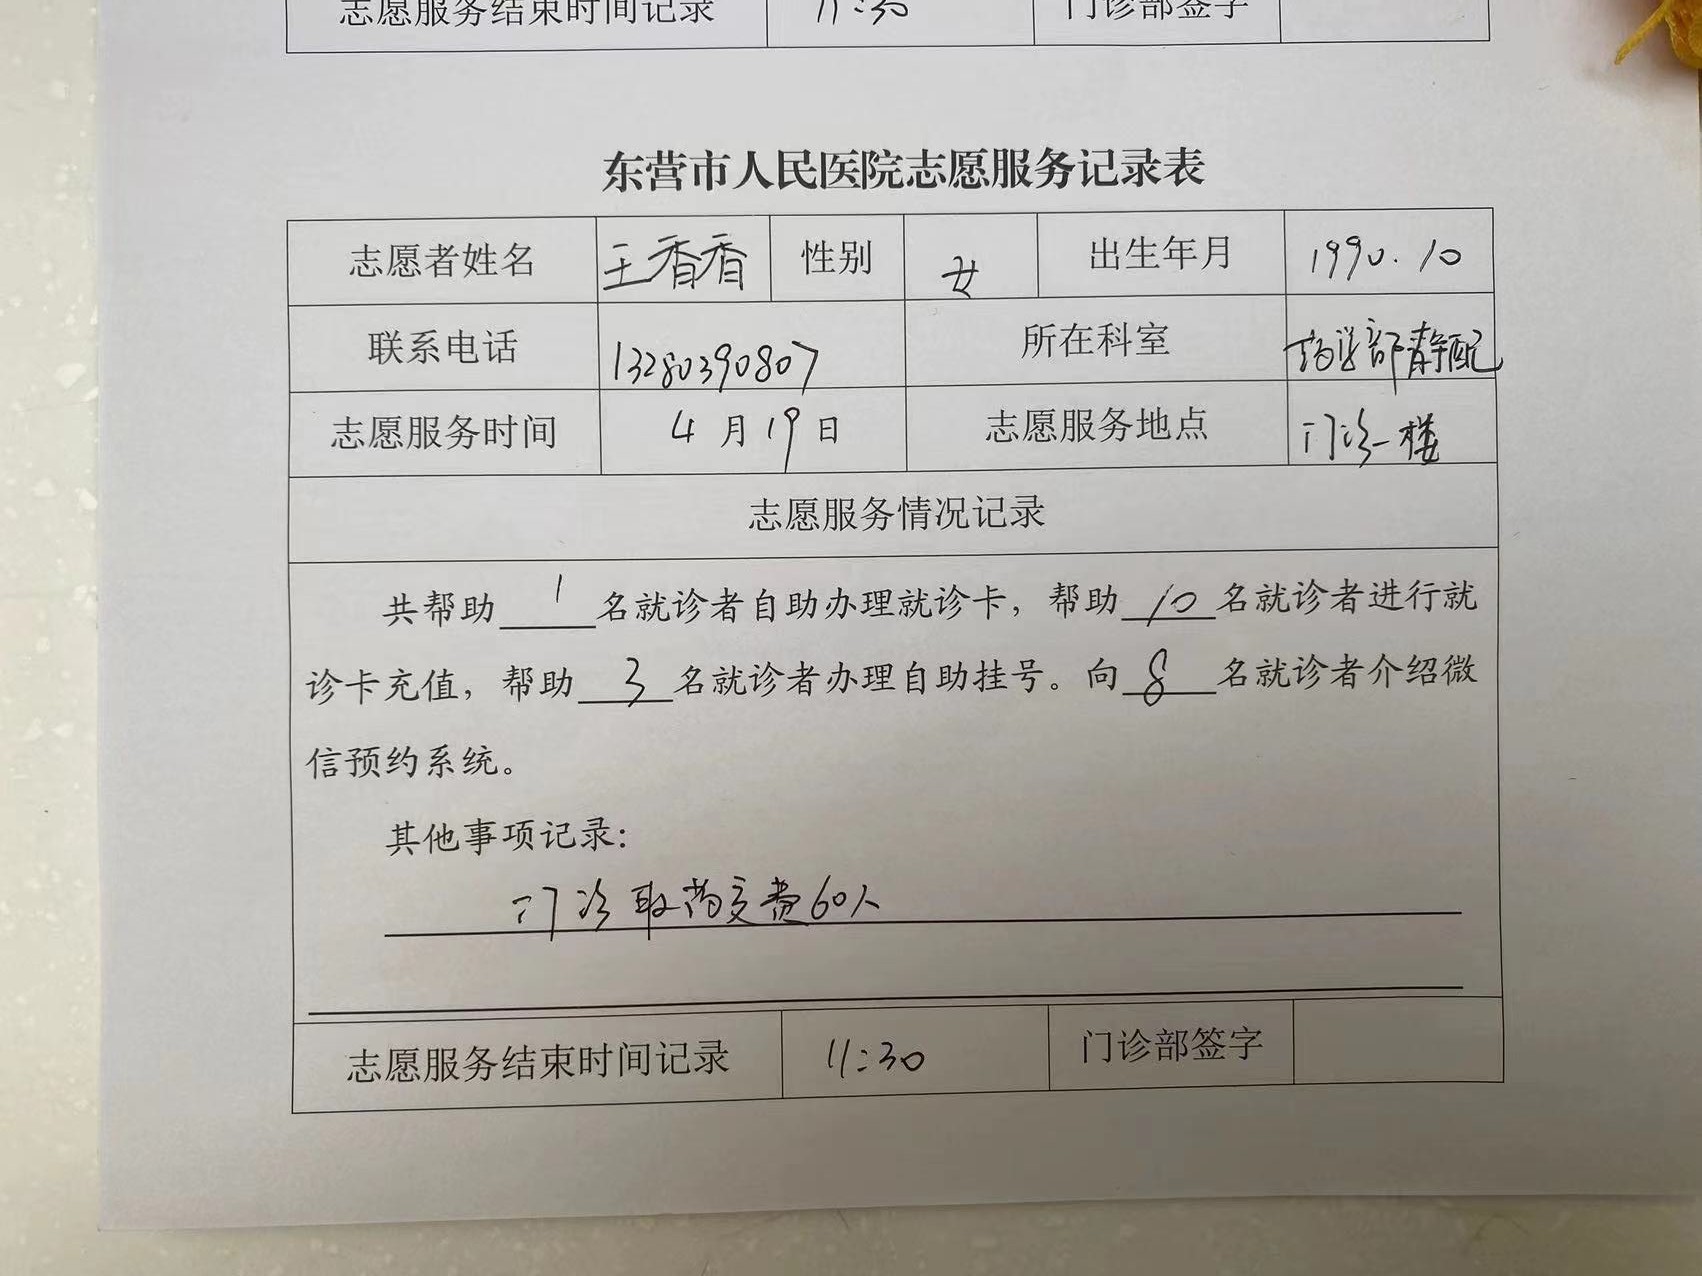 志愿服务结束时间记录 11:30 门诊部签字
东营市人民医院志愿服务记录表
志愿者姓名 王香香 性别 女 出生年月 1990.10
联系电话 13280390807 所在科室 药学部静配
志愿服务时间 4月19日 志愿服务地点 门诊一楼
志愿服务情况记录
共帮助 1 名就诊者自助办理就诊卡，帮助 10 名就诊者进行就
诊卡充值，帮助 3 名就诊者办理自助挂号。向 8 名就诊者介绍微
信预约系统。
其他事项记录：
门诊取药交费60人
志愿服务结束时间记录 11:30 门诊部签字